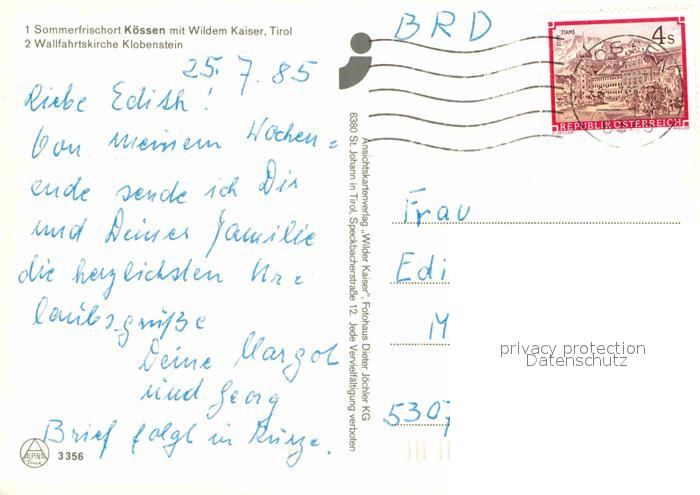 1 Sommerfrischort Kössen mit Wildem Kaiser, Tirol
2 Wallfahrtskirche Klobenstein
25. 7. 85
Liebe Edith!
Von meinem Wochen=
ende sende ich Dir
und Deiner Familie
die herzlichsten Ur=
laubsgrüße
Deine Margot
und Georg
Brief folgt in Kürze.
ALPINA
3356
Ansichtskartenverlag „Wilder Kaiser", Fotohaus Dieter Jöchler KG
6380 St. Johann in Tirol, Speckbacherstraße 12. Jede Vervielfältigung verboten
BRD
STIFT STAMS
4s
REPUBLIK ÖSTERREICH
Frau
Edi
M
530
privacy protection
Datenschutz